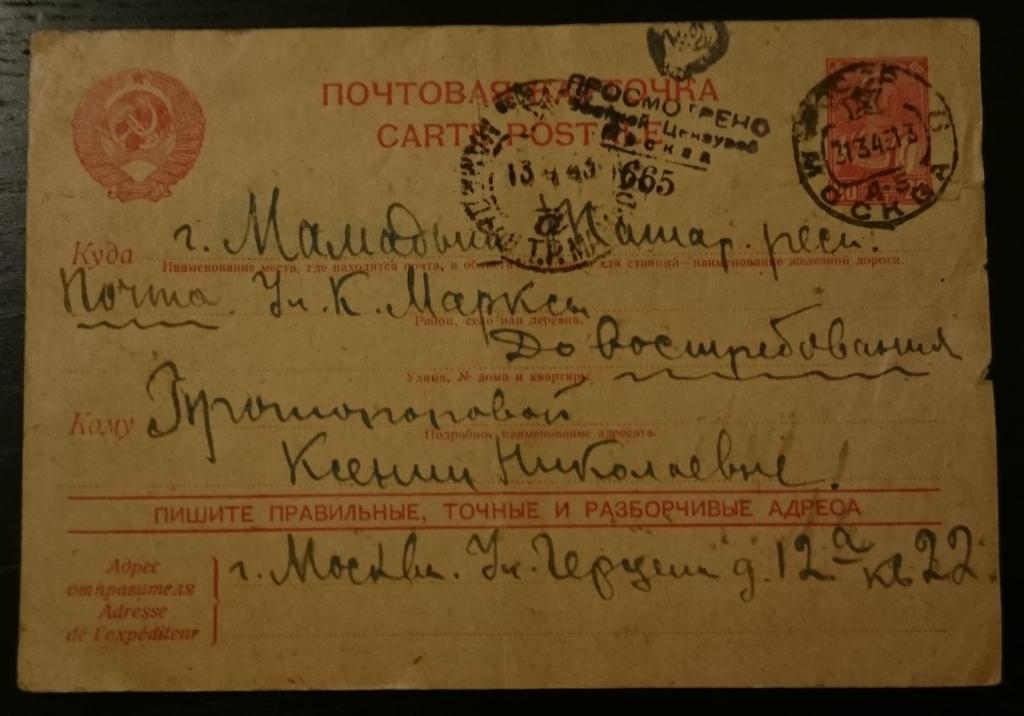 ПОЧТОВАЯ КАРТОЧКА
CARTE POSTALE
ПРОСМОТРЕНО
Военной Цензурой
Москва
665
МОСКВА
Куда г. Мамадыш Татар. респ.
Наименование места, где находится почта, и области или края, а для станций - наименование железной дороги.
Почта Ул. К. Маркса
Район, село или деревня.
До востребования
Улица, № дома и квартиры.
Кому Протопоповой
Подробное наименование адресата.
Ксении Николаевне.
ПИШИТЕ ПРАВИЛЬНЫЕ, ТОЧНЫЕ И РАЗБОРЧИВЫЕ АДРЕСА
Адрес
отправителя
Adresse
de l'expéditeur
г. Москва. Ул. Герцена д. 12 а кв 22.